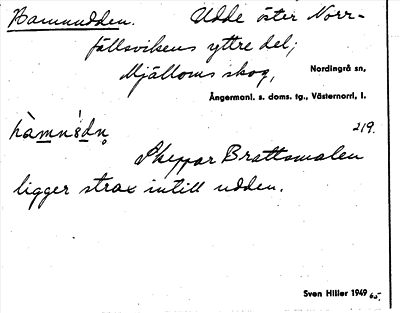 Hamnudden. Udde öster Norr-
fällsvikens yttre del;
Mjälloms skog, Nordingrå sn,
Ångermanl. s. doms. tg., Västernorrl. l.
hàmn'ùdn̥ 219.
Skeppar Brattsmalen
ligger strax intill udden.
Sven Hiller 1949